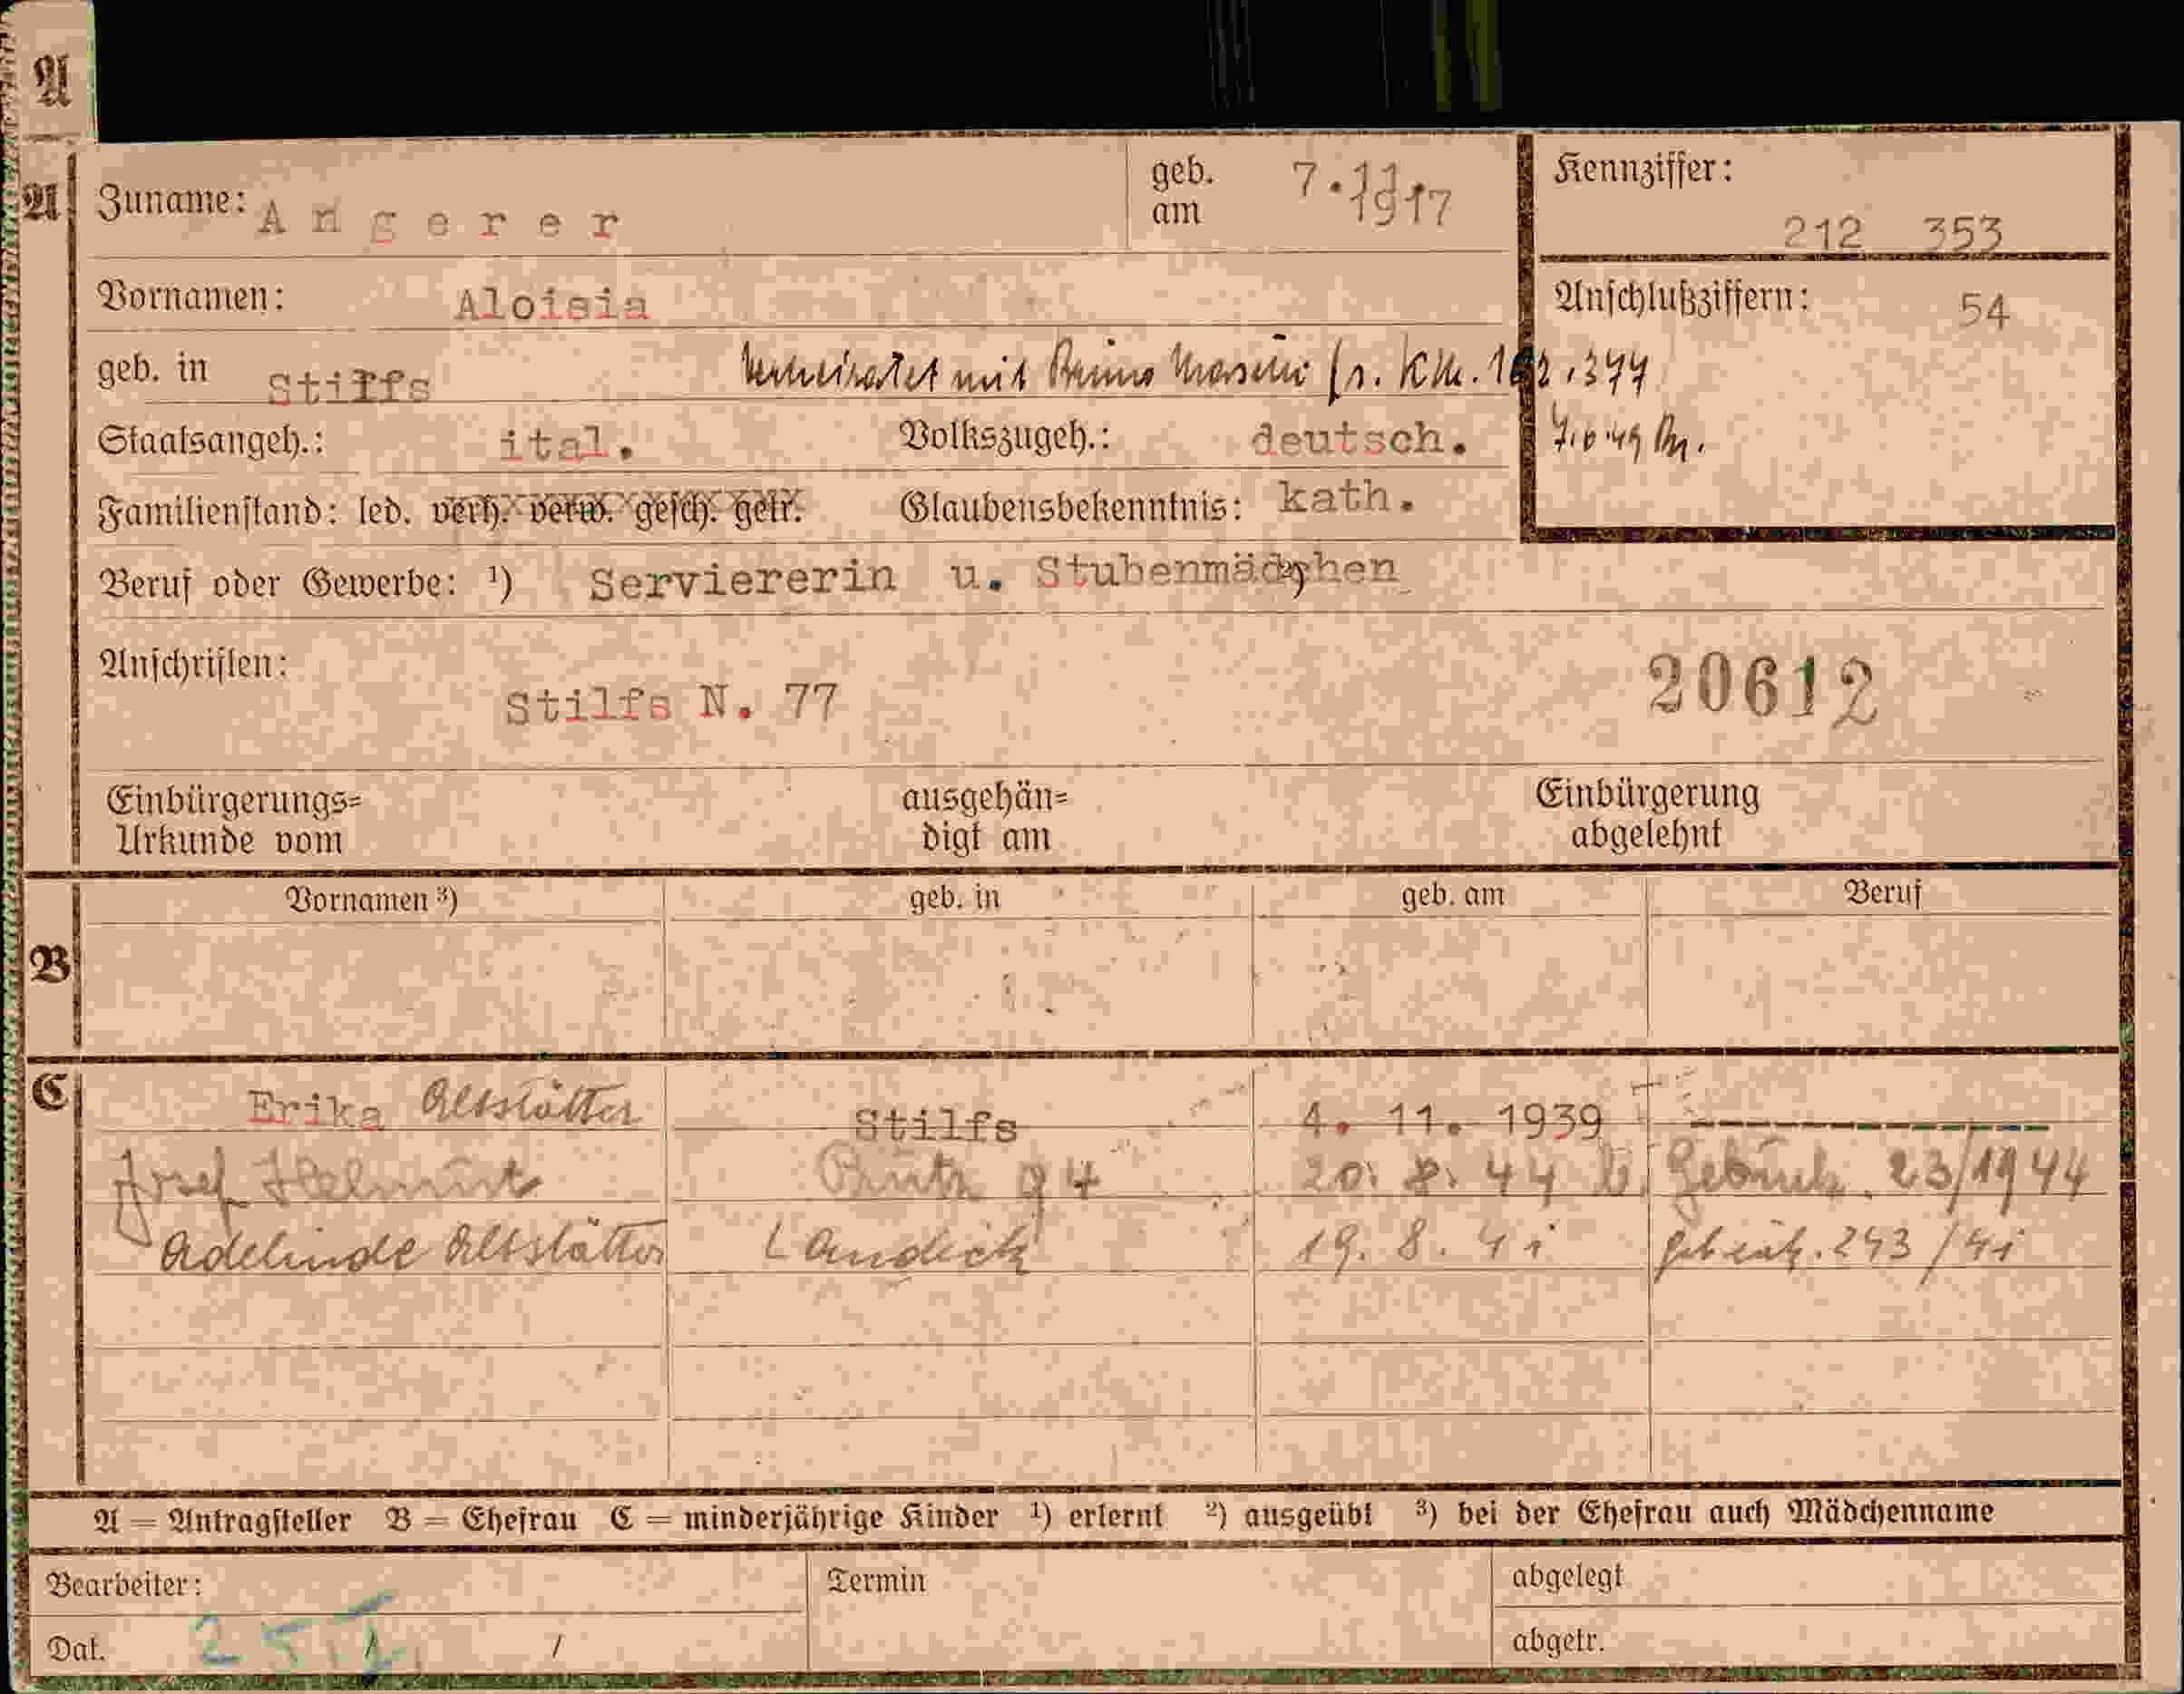 A
A
Zuname: Angerer
geb. am 7.11.1917
Kennziffer: 212 353
Vornamen: Aloisia
Anschlußziffern: 54
geb. in Stilfs
Verheiratet mit Bruno (s. KZ. 162.377
7.6.49
Staatsangeh.: ital. Volkszugeh.: deutsch.
Familienstand: led. verh. verw. gesch. getr. Glaubensbekenntnis: kath.
Beruf oder Gewerbe: ¹) Serviererin u. ²) Stubenmädchen
Anschriften: Stilfs N. 77
20612
Einbürgerungs=
Urkunde vom
ausgehän=
digt am
Einbürgerung
abgelehnt
B
Vornamen ³) geb. in geb. am Beruf
C
Erika Altstätter Stilfs 4. 11. 1939 ----------
Josef Helmut Prutz 94 20. 8. 44 Gebuch. 23/1944
Adelinde Altstätter Landeck 19. 8. 41 243/41
A = Antragsteller B = Ehefrau C = minderjährige Kinder ¹) erlernt ²) ausgeübt ³) bei der Ehefrau auch Mädchenname
Bearbeiter: Termin abgelegt
Dat. abgetr.